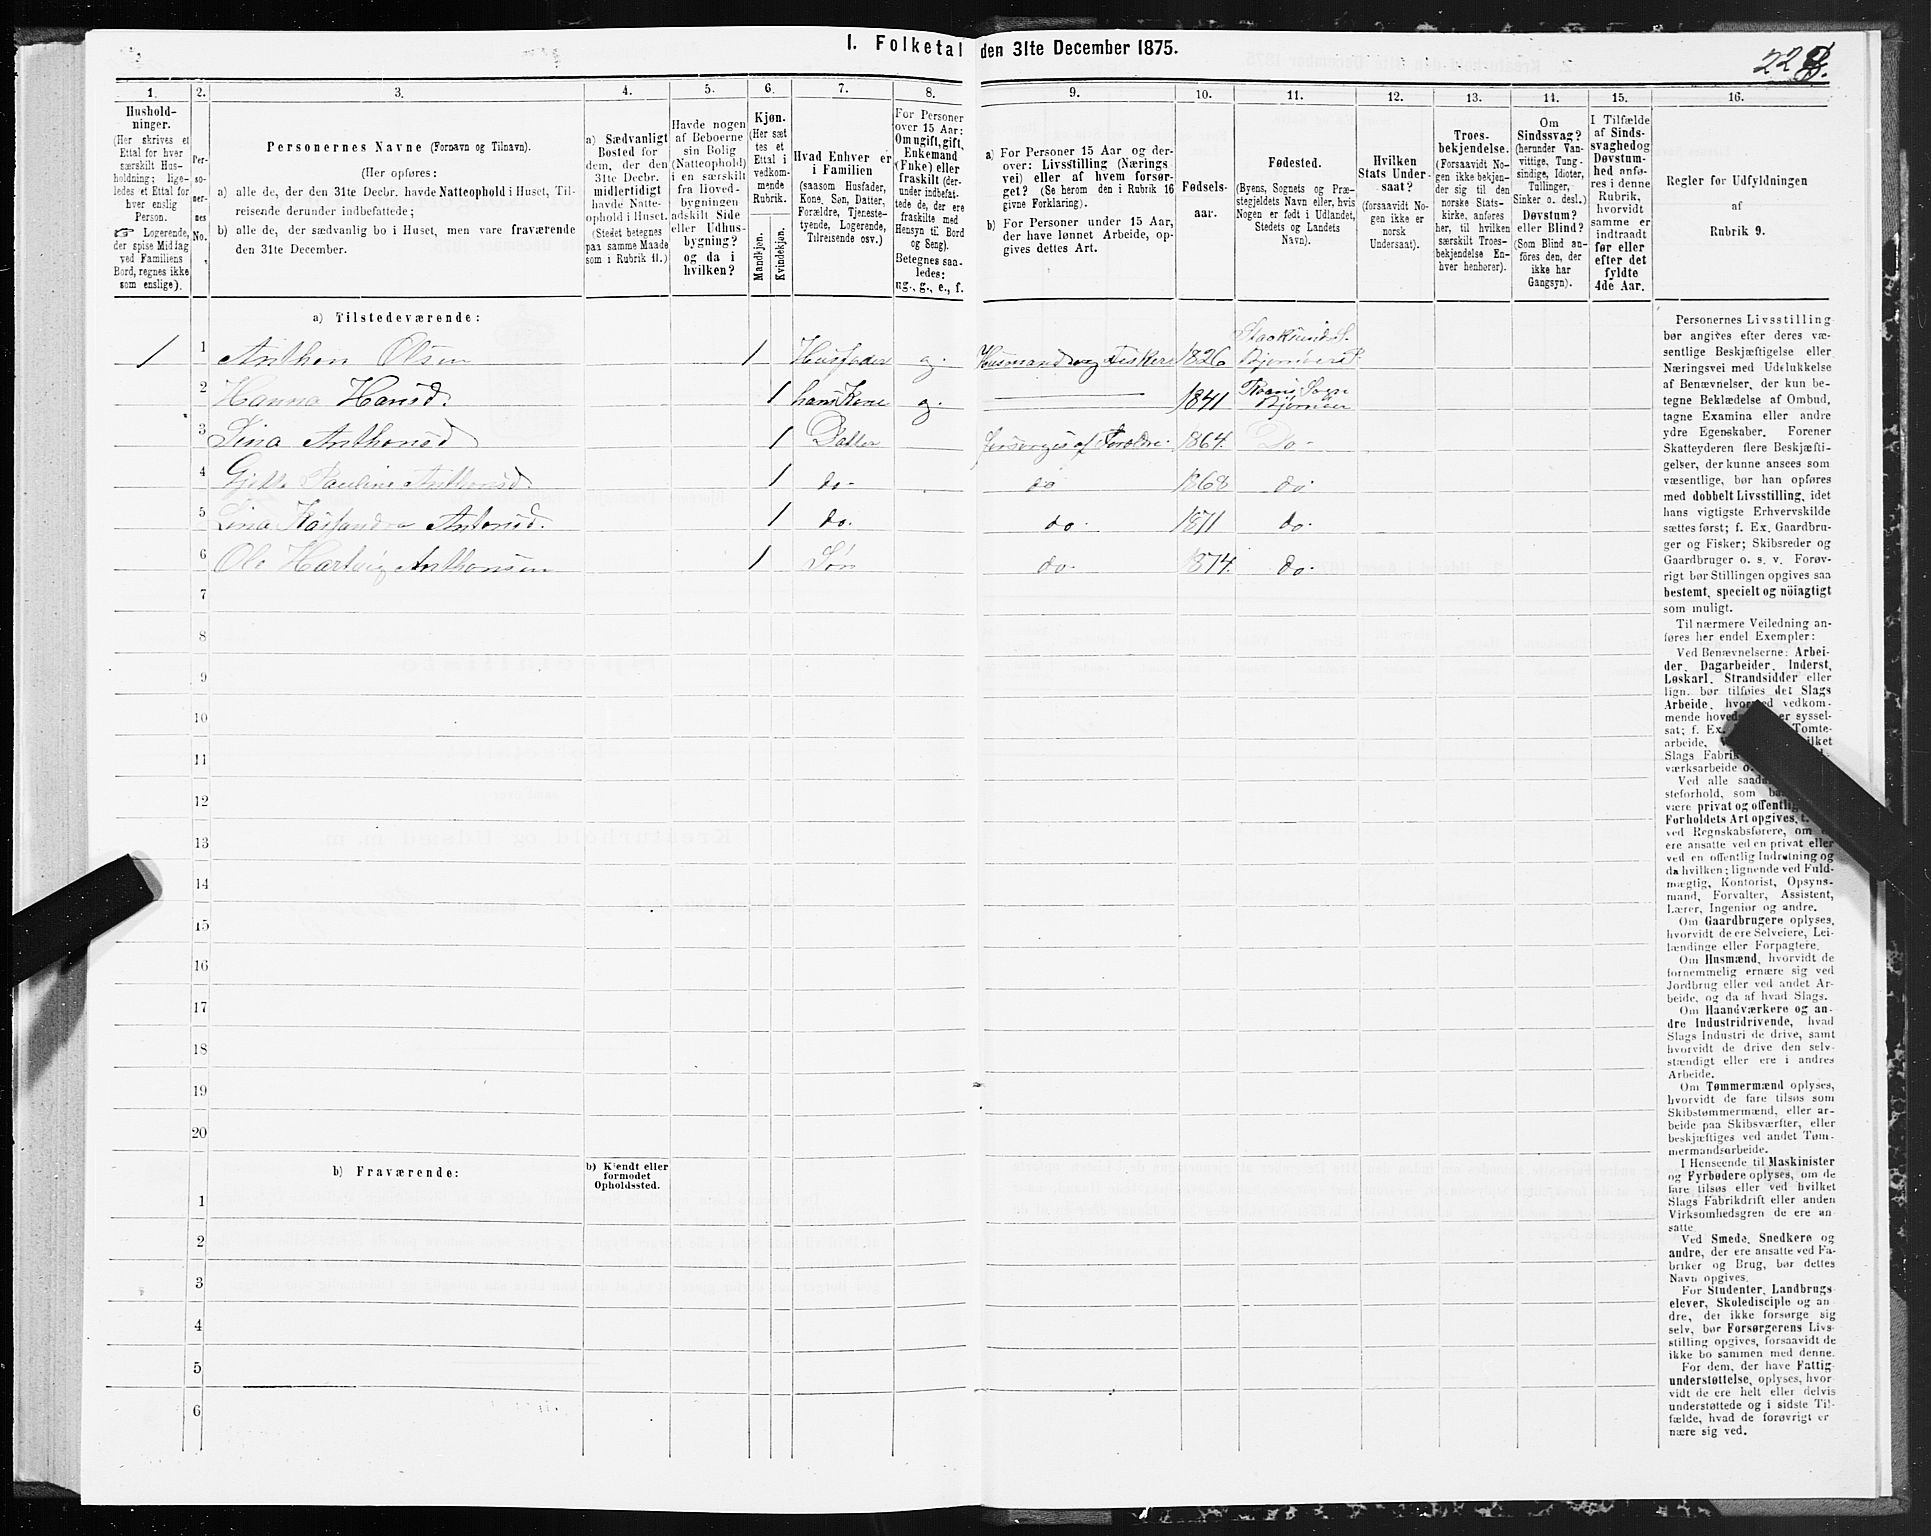 I. Folketal den 31te December 1875.
1. 2. 3. 4. 5. 6. 7. 8. 9. 10. 11. 12. 13. 14. 15. 16.
Hushold-
ninger.
(Her skrives et
Ettal for hver
særskilt Hus-
holdning; lige-
ledes et Ettal for
hver enslig
Person.
☞ Logerende,
der spise Middag
ved Familiens
Bord, regnes ikke
som enslige).
Per-
so-
ner-
nes
No.
Personernes Navne (Fornavn og Tilnavn).
(Her opføres:
a) alle de, der den 31te Decbr. havde Natteophold i Huset, Til-
reisende derunder indbefattede;
b) alle de, der sædvanlig bo i Huset, men vare fraværende
den 31te December.
a) Sædvanligt
Bosted for
dem, der den
31te Decbr.
midlertidigt
havde Natte-
ophold i Huset.
(Stedet betegnes
paa samme Maade
som i Rubrik 11.)
Havde nogen
af Beboerne
sin Bolig
(Natteophold)
i en særskilt
fra Hoved-
bygningen
adskilt Side
eller Udhus-
bygning?
og da i
hvilken?
Kjøn.
(Her sæt
tes et
Ettal i
vedkom-
mende
Rubrik.
Mandkjøn.
Kvindekjøn.
Hvad Enhver er
i Familien
(saasom Husfader,
Kone, Søn, Datter,
Forældre, Tjeneste-
tyende, Logerende,
Tilreisende osv.)
For Personer
over 15 Aar:
Om ugift, gift,
Enkemand
(Enke) eller
fraskilt (der-
under indbefat-
tede de, der ere
fraskilte med
Hensyn til Bord
og Seng).
Betegnes saa-
ledes:
ug., g., e., f.
a) For Personer 15 Aar og der-
over: Livsstilling (Nærings
vei) eller af hvem forsør-
get? (Se herom den i Rubrik 16
givne Forklaring).
b) For Personer under 15 Aar,
der have lønnet Arbeide, op-
gives dettes Art.
Fødsels-
aar.
Fødested.
(Byens, Sognets og Præ-
stegjeldets Navn eller, hvis
Nogen er født i Udlandet,
Stedets og Landets
Navn).
Hvilken
Stats Under-
saat?
(forsaavidt No-
gen ikke er
norsk
Undersaat).
Troes-
bekjendelse.
(Forsaavidt No-
gen ikke bekjen-
der sig til den
norske Stats-
kirke, anføres
her, til hvilken
særskilt Troes-
bekjendelse En-
hver henhører).
Om
Sindssvag?
(herunder Van-
vittige, Tung-
sindige, Idioter,
Tullinger,
Sinker o. desl.)
Døvstum?
eller Blind?
(Som Blind an-
føres den, der
ikke har
Gangsyn).
I Tilfælde
af Sinds-
svaghed og
Døvstum-
hed anfø-
res i denne
Rubrik,
hvorvidt
samme er
indtraadt
før eller
efter det
fyldte
4de Aar.
Regler for Udfyldningen
af
Rubrik 9.
a) Tilstedeværende:
1 1 Anthon Olsen 1 Husfader g. Husmand og Fisker 1826
2 Hanna Hansd. 1 hans Kone g. 1841
3 Lina Anthonsd 1 Datter forsørges af Forældre. 1864. Do
4 Pauline Anthonsd. 1 do. do 1868 do
5 Lina Antonsd. 1 do. do. 1871 do.
6 Ole Hartvig Anthonsen 1 Søn do. 1874. do.
7
8
9
10
11
12
13
14
15
16
17
18
19
20
b) Fraværende:
b) Kjendt eller
formodet
Opholdssted.
1
2
3
4
5
6
Personernes Livsstilling
bør angives efter deres væ-
sentlige Beskjæftigelse eller
Næringsvei med Udelukkelse
af Benævnelser, der kun be-
tegne Beklædelse af Ombud,
tagne Examina eller andre
ydre Egenskaber. Forener
Skatteyderen flere Beskjæfti-
gelser, der kunne ansees som
væsentlige, bør han opføres
med dobbelt Livsstilling, idet
hans vigtigste Erhvervskilde
sættes først; f. Ex. Gaardbru-
ger og Fisker; Skibsreder og
Gaardbruger o. s. v. Forøv-
rigt bør Stillingen opgives saa
bestemt, specielt og nöiagtigt
som muligt.
Til nærmere Veiledning an-
føres her endel Exempler:
Ved Benævnelserne: Arbei-
der, Dagarbeider, Inderst,
Løskarl, Strandsidder eller
lign. bør tilføies det Slags
Arbeide, hvormed vedkom-
mende er syssel-
sat; f. Ex. Tomte-
arbeide,
Slags
værksarbeide
Ved alle
steforhold, som
være privat og offentlig,
Forholdets Art opgives,
ved Regnskabsførere, om
ere ansatte ved en privat eller
ved en offentlig Indretning og
da hvilken; lignende ved Fuld-
mægtig, Kontorist, Opsyns-
mand, Forvalter, Assistent,
Lærer, Ingeniør og andre.
Om Gaardbrugere oplyses,
hvorvidt de ere Selveiere, Lei-
lændinge eller Forpagtere.
Om Husmænd, hvorvidt de
fornemmelig ernære sig ved
Jordbrug eller ved andet Ar-
beide, og da af hvad Slags.
Om Haandværkere og an-
dre Industridrivende, hvad
Slags Industri de drive, samt
hvorvidt de drive den selv-
stændigt eller ere i andres
Arbeide.
Om Tømmermænd oplyses,
hvorvidt de fare tilsøs som
Skibstømmermænd, eller ar-
beide paa Skibsværfter, eller
beskjæftiges ved andet Tøm-
mermandsarbeide.
I Henseende til Maskinister
og Fyrbødere oplyses, om de
fare tilsøs eller ved hvilket
Slags Fabrikdrift eller anden
Virksomhedsgren de ere an-
satte.
Ved Smede, Snedkere og
andre, der ere ansatte ved Fa-
briker og Brug, bør dettes
Navn opgives.
For Studenter, Landbrugs-
elever, Skoledisciple og an-
dre, der ikke forsørge sig
selv, bør Forsørgerens Livs-
stilling opgives, forsaavidt de
ikke bo sammen med denne.
For dem, der have Fattig-
understøttelse, oplyses, hvor-
vidt de ere helt eller delvis
understøttede og i sidste Til-
fælde, hvad de forøvrigt er
nære sig ved.